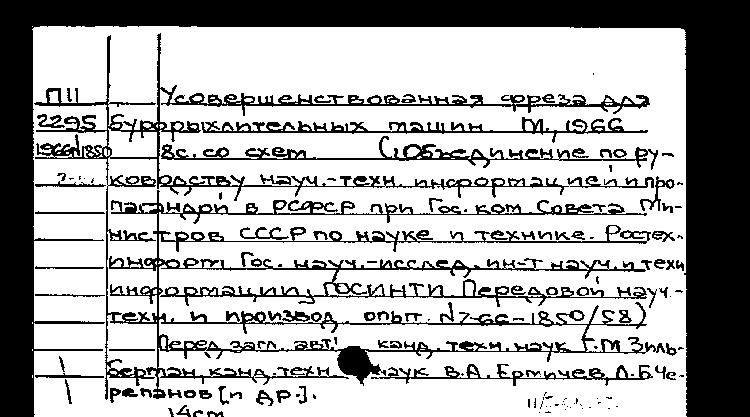 П11 Усовершенствованная фреза для
2295 бурорыхлительных машин. М., 1966
1966/1850 8с. со схем. (Объединение по ру-
ководству науч.-техн. информацией и про-
пагандой в РСФСР при Гос. ком. Совета Ми-
нистров СССР по науке и технике. Ростех-
информ Гос. науч.-исслед. ин-т науч. и техн
информации, ГОСИНТИ. Передовой науч.-
техн. и производ. опыт. №7-66-1850/58)
Перед загл. авт.: канд. техн. наук Г.М. Зиль-
берман, канд. техн. наук В.А. Ермичев, Л.Б. Че-
репанов [и др.].
14см